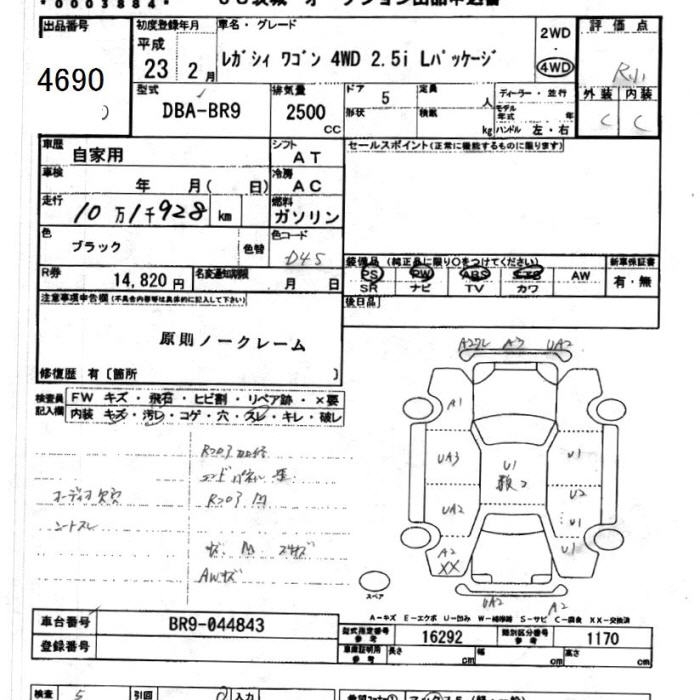 *0003884*
出品番号
初度登録年月
車名・グレード
評価点
平成
23 2月
レガシィ ワゴン 4WD 2.5i Lパッケージ
2WD
4WD
4690
型式
DBA-BR9
排気量
2500
CC
ドア 5
形状
定員
人
積載
kg
ディーラー・並行
モデル年式
年
ハンドル 左・右
外装 内装
C C
車歴
自家用
シフト
AT
セールスポイント(正常に機能するものに限ります)
車検
年 月( 日)
冷房
AC
走行
10万1千928 km
燃料
ガソリン
色
ブラック
色替
色コード
D4S
装備品 (純正品に限り○をつけてください)
新車保証書
PS PW ABS エアB AW
有・無
SR ナビ TV カワ
R券
14,820円
名変通知期限
月 日
後日品
注意事項申告欄(不具合内容等は具体的に記入して下さい)
原則ノークレーム
修復歴 有[箇所 ]
検査員
記入欄
FW キズ・飛石・ヒビ割・リペア跡・×要
内装 キズ・汚レ・コゲ・穴・スレ・キレ・破レ
オーディオ欠品
シートスレ
AWキズ
A3
UA2
A1
UA3
U1
U1
UA2
U2
U1
A2
XX
U1
UA2
A2
スペア
A-キズ E-エクボ U-凹み W-補修跡 S-サビ C-腐食 XX-交換済
車台番号
BR9-044843
型式指定番号
参考
16292
類別区分番号
参考
1170
登録番号
車庫証明用
参考
長さ
cm
幅
cm
高さ
cm
検査
5
引回
0
入力